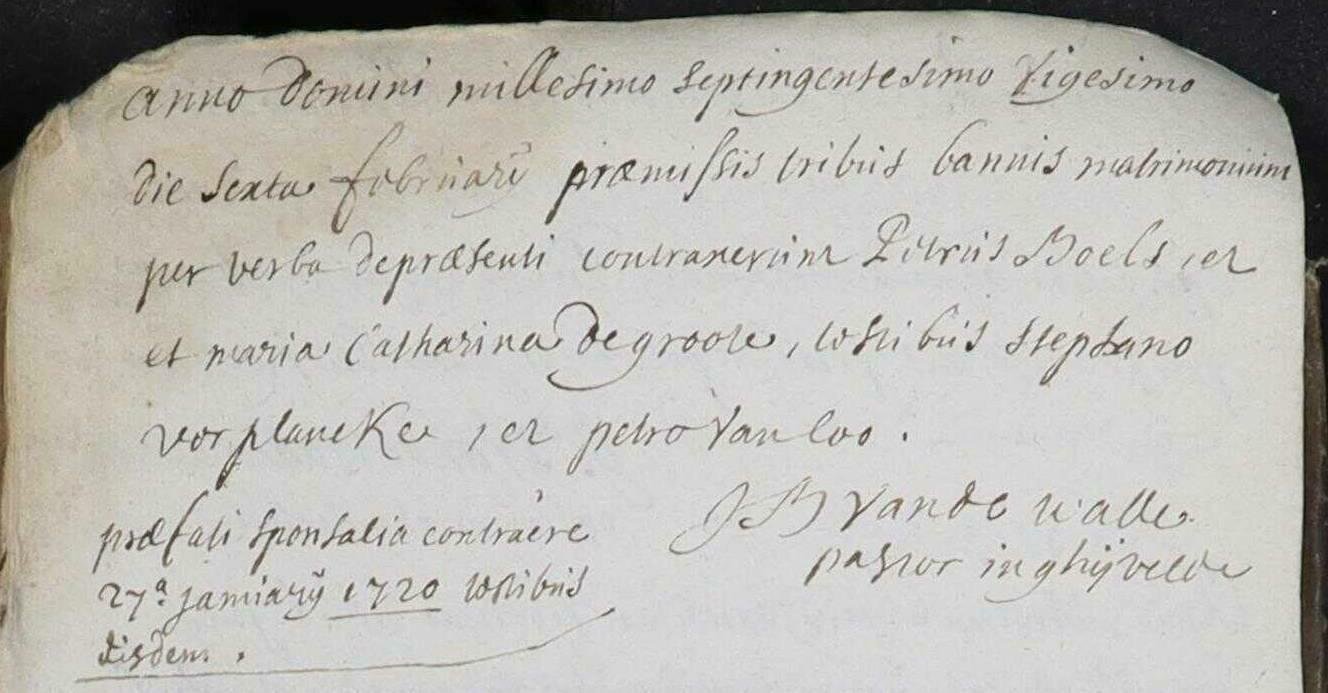 anno Domini millesimo septingentesimo vigesimo
die sexta februarÿ præmissis tribus bannis matrimonium
per verba depræsenti contraxerunt Petrus Boels, et
et maria Catharina De groote, testibus stephano
verplancke, et petro Van loo.
præfati sponsalia contraère
27ª januarÿ 1720 testibus
iisdem.
JB Vande walle
pastor in ghijvelde